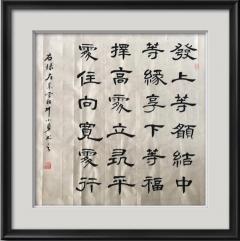 發上等願結中
等緣享下等福
擇高處立尋平
處住向寬處行
右錄左宗棠